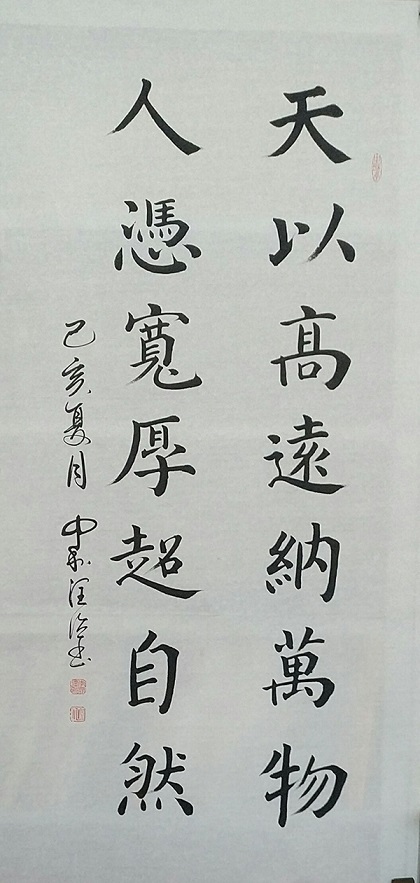 天以高遠納萬物
人憑寬厚超自然
己亥夏月